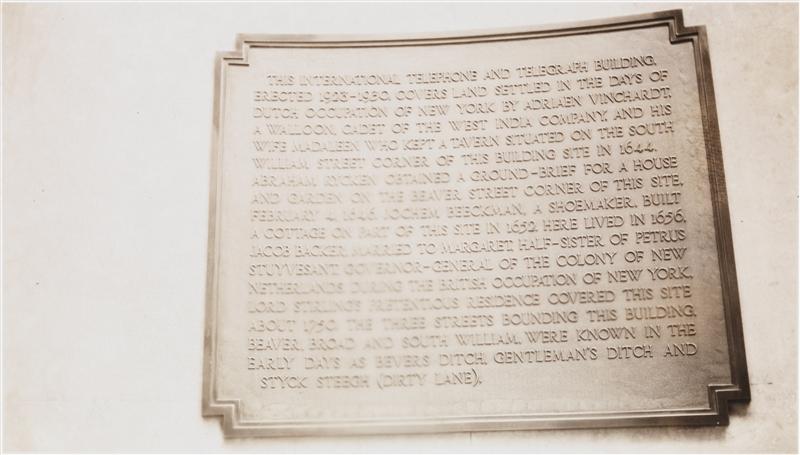 THIS INTERNATIONAL TELEPHONE AND TELEGRAPH BUILDING,
ERECTED 1928-1930, COVERS LAND SETTLED IN THE DAYS OF
DUTCH OCCUPATION OF NEW YORK BY ADRIAEN VINCHARDT,
A WALLOON, CADET OF THE WEST INDIA COMPANY, AND HIS
WIFE MADALEEN WHO KEPT A TAVERN SITUATED ON THE SOUTH
WILLIAM STREET CORNER OF THIS BUILDING SITE IN 1644.
ABRAHAM RYCKEN OBTAINED A GROUND-BRIEF FOR A HOUSE
AND GARDEN ON THE BEAVER STREET CORNER OF THIS SITE,
FEBRUARY 4, 1646. JOCHEM BEECKMAN, A SHOEMAKER, BUILT
A COTTAGE ON PART OF THIS SITE IN 1652. HERE LIVED IN 1656,
JACOB BACKER, MARRIED TO MARGARET HALF-SISTER OF PETRUS
STUYVESANT, GOVERNOR-GENERAL OF THE COLONY OF NEW
NETHERLANDS. DURING THE BRITISH OCCUPATION OF NEW YORK,
LORD STIRLING'S PRETENTIOUS RESIDENCE COVERED THIS SITE
ABOUT 1750. THE THREE STREETS BOUNDING THIS BUILDING,
BEAVER, BROAD AND SOUTH WILLIAM, WERE KNOWN IN THE
EARLY DAYS AS BEVERS DITCH, GENTLEMAN'S DITCH AND
STYCK STEEGH (DIRTY LANE).